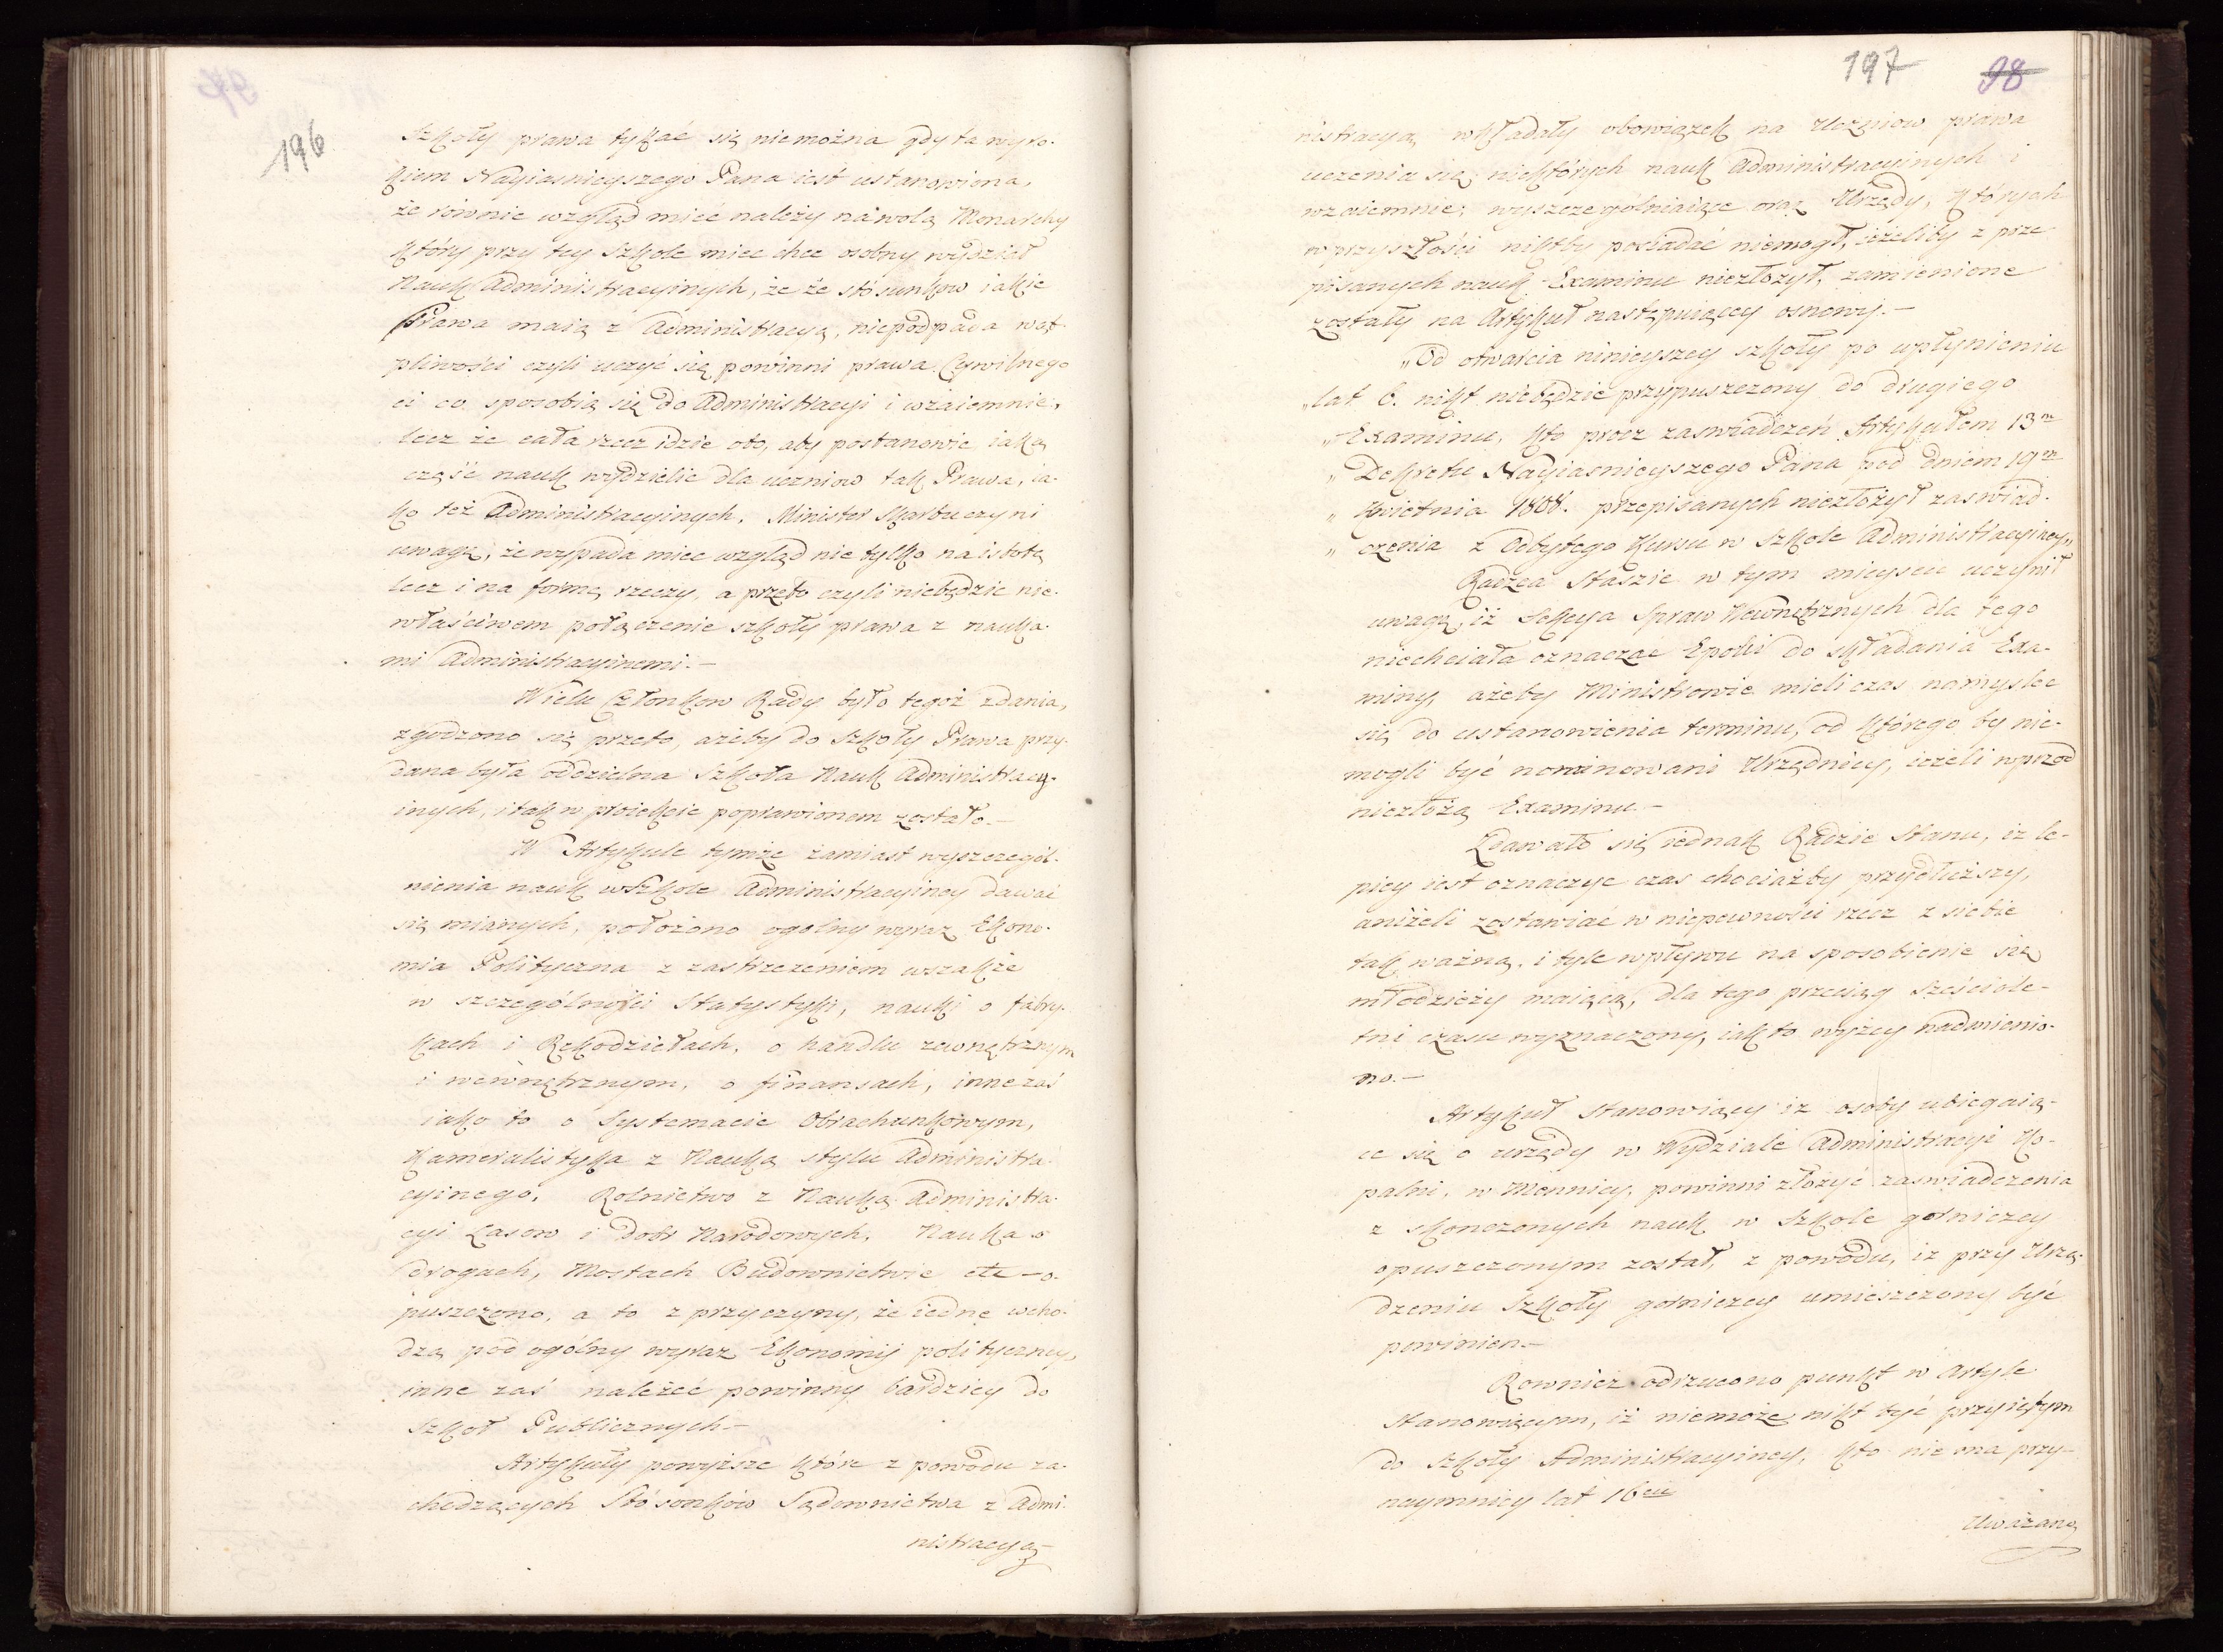 196
Szkoły prawa tykać się niemożna gdy ta wyro-
kiem Nayiasnieyszego Pana iest ustanowiona,
że równie wzgląd mieć należy na wolą Monarchy
który przy tey Szkole miec chce osobny wydział
Nauk Administracyinych, że ze stósunkow iakie
Prawa maią z Administracyą, niepodpada wąt-
pliwości czyli uczyć się powinni prawa Cywilnego
ci co sposobią się do Administracyi i wzaiemnie,
lecz że cała rzecz idzie oto, aby postanowić iaką
część nauk wydzielić dla uczniow tak Prawa, ia-
ko też Administracyinych. Minister Skarbu czyni
uwagę, że wypada miec wzgląd nie tylko na istotę
lecz i na formę rzeczy, a przeto czyli niebędzie nie-
właściwem połączenie szkoły prawa z nauka-
mi Administracyinemi.—
Wielu Członkow Rady było tegoż zdania,
zgodzono się przeto, ażeby do Szkoły Prawa przy-
dana była oddzielna Szkoła Nauk Administracy-
inych, i tak w proiekcie poprawionem zostało.—
W Artykule tymże zamiast wyszczegól-
nienia nauk w Szkole Administracyiney dawać
się mianych, położono ogolny wyraz Ekono-
mia Polityczna z zastrzezeniem wszakże
w szczególności Statystyki, nauki o fabry-
kach i Rękodziełach, o handlu zewnętrznym
i wewnętrznym, o finansach, inne zaś
iako to o Systemacie Obrachunkowym,
Kameralistyka z Nauką stylu Administra-
cyinego, Rolnictwo z Nauką Administra-
cyi Lasow i dobr Narodowych. Nauka o
drogach, Mostach Budownictwie etc — o-
puszczono, a to z przyczyny, że iedne wcho-
dzą pod ogólny wyraz Ekonomij polityczney,
inne zaś należeć powinny bardziey do
Szkoł Publicznych—
Artykuły powyższe które z powodu za-
chodzących Stósonków Sądownictwa z Admi-
nistracyą
197 98
nistracyą wkładały obowiązek na Uczniow prawa
uczenia się niektórych nauk Administracyinych i
wzaiemnie, wyszczególniaiące oraz Urzędy, których
w przyszłości niktby posiadać niemogł, ieżeliby z prze-
pisanych nauk Examinu niezłożył, zamienione
zostały na Artykuł następuiący osnowy.—
„Od otwarcia ninieyszey szkoły po upłynieniu
„lat 6. nikt niebędzie przypuszczony do drugiego
„Examinu, kto procz zaswiadczeń Artykułem 13m
„Dekretu Nayiasnieyszego Pana pod dniem 19m
„Kwietnia 1808. przepisanych niezłożył zaswiad-
„czenia z Odbytego Kursu w Szkole Administracyiney„
Radzca Staszic w tym mieyscu uczynił
uwagę, iż Sekcya Spraw Wewnętrznych dla tego
niechciała oznaczać Epoki do składania Exa-
miny, ażeby Ministrowie mieli czas namyslec
się do ustanowienia terminu, od którego by nie-
mogli być nominowani Urzędnicy, ieżeli wprzod
niezłożą Examinu—
Zdawało się iednak Radzie Stanu, iz le-
piey iest oznaczyc czas chociażby przydłuższy,
aniżeli zostawiać w niepewności rzecz z siebie
tak ważną, i tyle wpływu na sposobienie się
młodzieży maiącą, dla tego przeciąg sześciole-
tni czasu wyznaczony, iak to wyżey nadmienio-
no.—
Artykuł stanowiący iz osoby ubiegaią-
ce się o urzędy w Wydziale Administracyi Ko-
palni, w Mennicy, powinni złożyć zaswiadczenia
z skonczonych nauk w Szkole gorniczey
opuszczonym został, z powodu, iz przy Urzą-
dzeniu Szkoły gorniczey umieszczony być
powinien—
Rownież odrzucono punkt w Artyle
Stanowiącym, iż niemoże nikt być przyiętym
do Szkoły Administracyiney, kto nie ma przy-
naymniey lat 16cu
Uważano